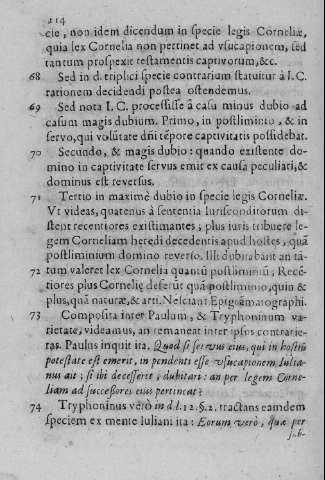 214
cie, non idem dicendum in specie legis Corneliæ,
quia lex Cornelia non pertinet ad vsucapionem, sed
tantum prospexit testamentis captivorum, &c.
68 Sed in d. triplici specie contrarium statuitur à I. C.
rationem decidendi postea ostendemus.
69 Sed nota I. C. processisse à casu minus dubio ad
casum magis dubium. Primo, in postliminio, & in
servo, qui volũtate dñi tẽpore captivitatis possidebat.
70 Secundo, & magis dubio: quando existente do-
mino in captivitate servus emit ex causa peculiari, &
dominus est reversus.
71 Tertio in maximè dubio in specie legis Corneliæ.
Vt videas, quatenus à sententia Iurisconditorum di-
stent recentiores existimantes, plus iuris tribuere le-
gem Corneliam heredi decedentis apud hostes, quã
postliminium domino reverso. Illi dubitabant an tã-
72 tum valeret lex Cornelia quantũ postliminiũ, Recẽ-
tiores plus Cornelię deferũt quã postliminio, quin &
plus, quã naturæ, & arti. Nesciant Epigrãmatographi.
73 Composita inter Paulum, & Tryphoninum va-
rietate, videamus, an remaneat inter ipsos contrarie-
tas. Paulus inquit ita. Quod si servus eius, qui in hostiũ
potestate est emerit, in pendenti esse vsucapionem Iulia-
nus ait; si ibi decesserit, dubitari: an per legem Corne-
liam ad successores eius pertineat?
74 Tryphoninus verò in d l. 12. §. 2. tractans eamdem
speciem ex mente Iuliani ita: Eorum verò, quæ per